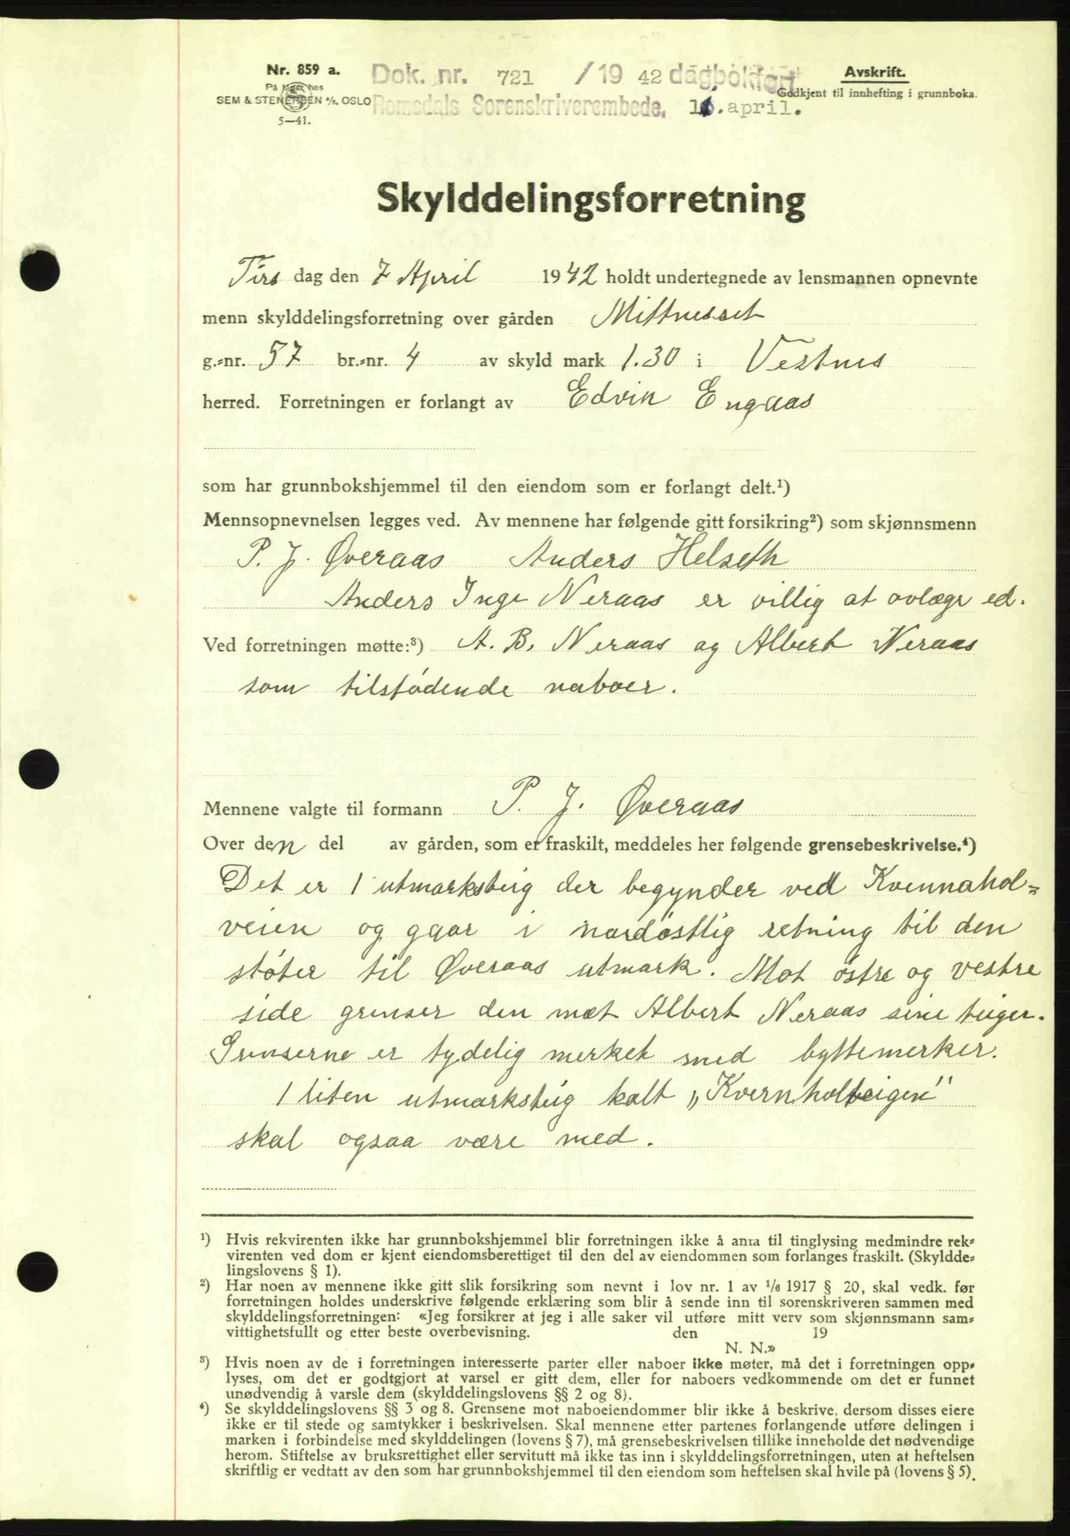 Nr. 859 a.
På lager hos
SEM & STENERSEN A/S, OSLO
5—41.
Dok. nr. 721 /19 42 dagbokført
Romsdals Sorenskriverembede, 16.april.
Avskrift.
Godkjent til innhefting i grunnboka.
Skylddelingsforretning
Tirs dag den 7 April 1942 holdt undertegnede av lensmannen opnevnte
menn skylddelingsforretning over gården Mittnesset
g.-nr. 57 br.-nr. 4 av skyld mark 1.30 i Vestnes
herred. Forretningen er forlangt av Edvin Engaas
som har grunnbokshjemmel til den eiendom som er forlangt delt.¹)
Mennsopnevnelsen legges ved. Av mennene har følgende gitt forsikring²) som skjønnsmenn
P. J. Øveraas Anders Helseth
Anders Inge Neraas er villig at avlægr ed.
Ved forretningen møtte:³) A. B. Neraas og Albert Neraas
som tilstødende naboer.
Mennene valgte til formann P. J. Øveraas
Over den del av gården, som er fraskilt, meddeles her følgende grensebeskrivelse.⁴)
Det er 1 utmarksteig der begynder ved Kvennahol=
veien og gaar i nordøstlig retning til den
støter til Øveraas utmark. Mot østre og vestre
side grenser den mæt Albert Neraas sine teiger.
Grenserne er tydelig merket med byttemerker.
1 liten utmarksteig kalt „Kvernholteigen"
skal ogsaa være med.
¹) Hvis rekvirenten ikke har grunnbokshjemmel blir forretningen ikke å anta til tinglysing medmindre rek-
virenten ved dom er kjent eiendomsberettiget til den del av eiendommen som forlanges fraskilt. (Skyldde-
lingslovens § 1).
²) Har noen av mennene ikke gitt slik forsikring som nevnt i lov nr. 1 av 1/6 1917 § 20, skal vedk. før
forretningen holdes underskrive følgende erklæring som blir å sende inn til sorenskriveren sammen med
skylddelingsforretningen: «Jeg forsikrer at jeg i alle saker vil utføre mitt verv som skjønnsmann sam-
vittighetsfullt og etter beste overbevisning. den 19
N. N.»
³) Hvis noen av de i forretningen interesserte parter eller naboer ikke møter, må det i forretningen opp-
lyses, om det er godtgjort at varsel er gitt dem, eller for naboers vedkommende om det er funnet
unødvendig å varsle dem (skylddelingslovens §§ 2 og 8).
⁴) Se skylddelingslovens §§ 3 og 8. Grensene mot naboeiendommer blir ikke å beskrive, dersom disses eiere
ikke er til stede og samtykker i beskrivelsen. Skal mennene etter partenes forlangende utføre delingen i
marken i forbindelse med skylddelingen (lovens § 7), må grensebeskrivelsen tillike inneholde det nødvendige
herom. Stiftelse av bruksrettighet eller servitutt må ikke tas inn i skylddelingsforretningen, uten at heftelsen
skriftlig er vedtatt av den som har grunnbokshjemmel til den eiendom som heftelsen skal hvile på (lovens § 5).